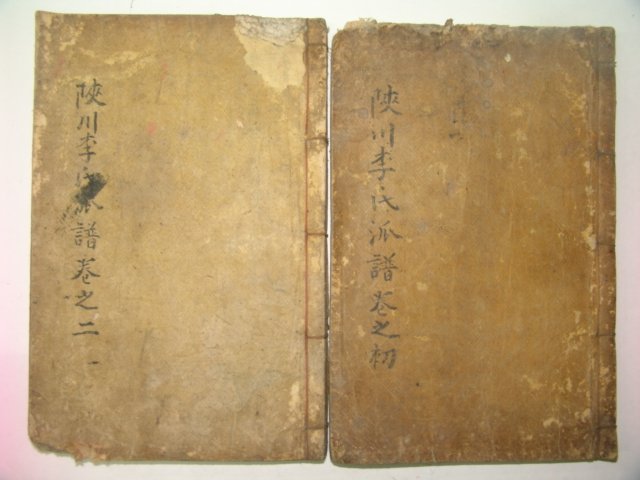 陜川李氏派譜卷之初
陜川李氏派譜卷之二